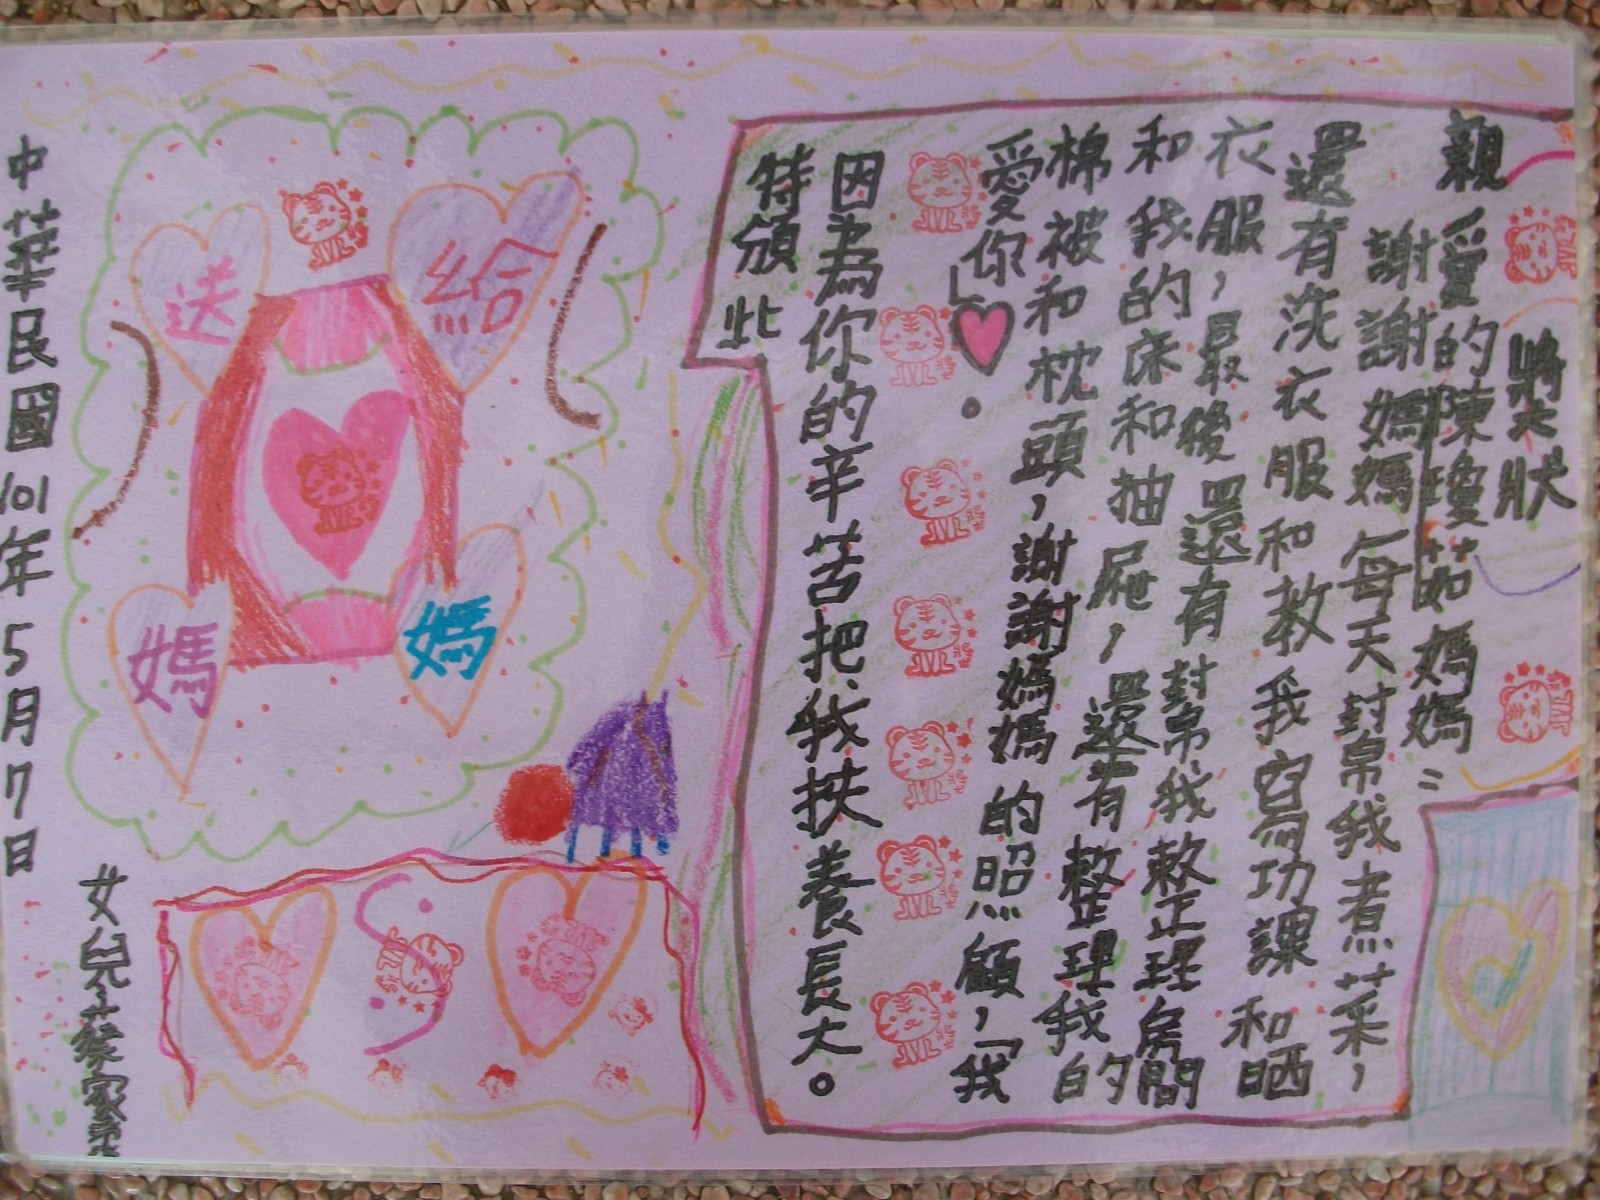 獎狀
親愛的陳瓊茹媽媽：
謝謝媽媽每天幫我煮菜，
還有洗衣服和教我寫功課和晒
衣服，最後還有幫我整理房間
和我的床和抽屜，還有整理我的
棉被和枕頭，謝謝媽媽的照顧，「我
愛你」。
因為你的辛苦把我扶養長大。
特頒此
送給
媽媽
女兒蔡家
中華民國101年5月7日